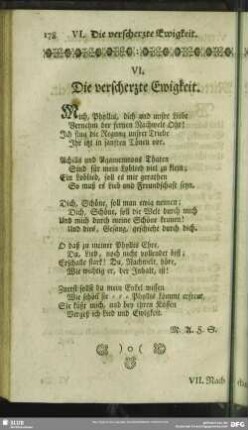 178 VI. Die verscherzte Ewigkeit.
VI.
Die verscherzte Ewigkeit.
Mich, Phyllis, dich und unsre Liebe
Vernehm der fernen Nachwelt Ohr!
Ich sing die Regung unsrer Triebe
Ihr itzt in sanften Tönen vor.
Achills und Agamemnons Thaten
Sind für mein Loblied viel zu klein;
Ein Loblied, soll es mir gerathen
So muß es Lieb und Freundschaft seyn.
Dich, Schöne, soll man ewig nennen;
Dich, Schöne, soll die Welt durch mich
Und mich durch meine Schöne kennen!
Und dies, Gesang, geschieht durch dich.
O daß zu meiner Phyllis Ehre,
Du, Lied, noch nicht vollendet bist;
Erschalle stark! Du, Nachwelt, höre,
Wie wichtig er, der Inhalt, ist!
Zuerst sollst du mein Enkel wissen
Wie schön sie - - - Phyllis kömmt erfreut,
Sie küßt mich, und bey ihren Küssen
Vergeß ich Lied und Ewigkeit.
N. A. F. S.
) o (
VII. Nach
SLUB